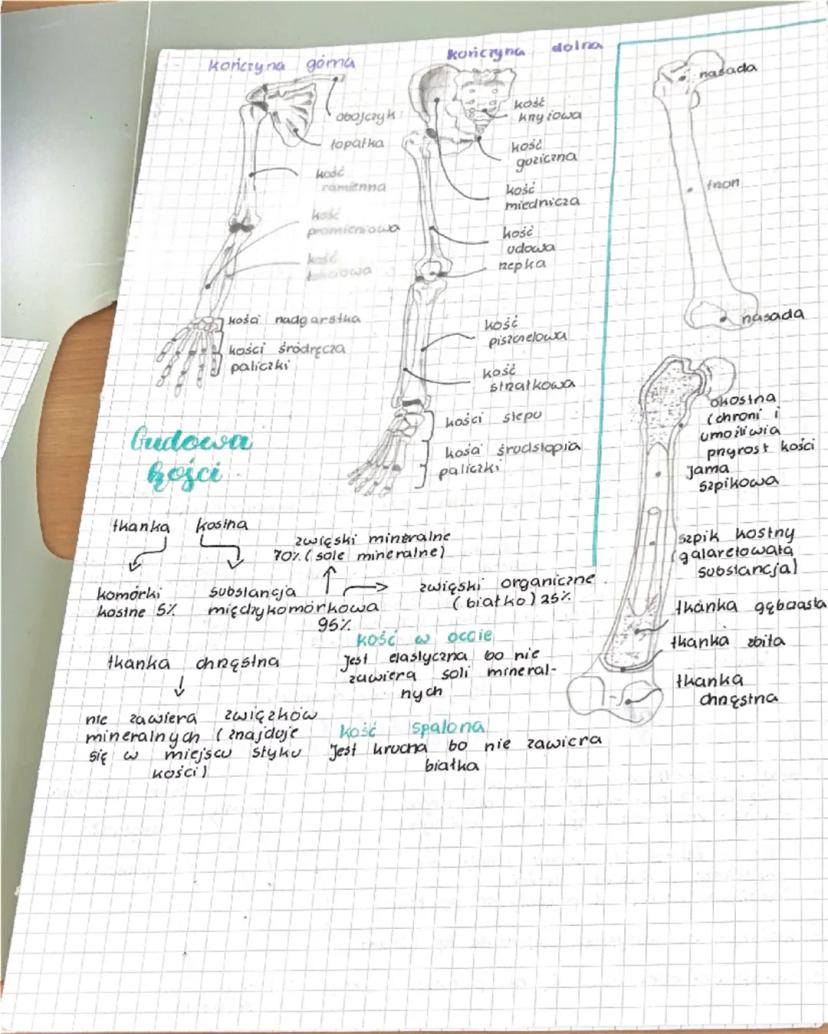 kończyna górna
obojczyk
łopatka
kość
ramienna
kość
promieniowa
kość
łokciowa
kości nadgarstka
kości śródręcza
paliczki
kończyna dolna
kość
krzyżowa
kość
guziczna
kość
miednicza
kość
udowa
rzepka
kość
piszczelowa
kość
strzałkowa
kości stępu
kości śródstopia
paliczki
nasada
trzon
nasada
okostna
(chroni i
umożliwia
przyrost kości
jama
szpikowa
szpik kostny
(galaretowata
substancja)
tkanka gąbczasta
tkanka zbita
tkanka
chrzęstna
Budowa
kości
tkanka kostna
komórki
kostne 5%
substancja
międzykomórkowa
95%
związki mineralne
70% (sole mineralne)
związki organiczne
(białko) 25%
tkanka chrzęstna
nie zawiera związków
mineralnych (znajduje
się w miejscu styku
kości)
kość w occie
Jest elastyczna bo nie
zawiera soli mineral-
nych
kość spalona
Jest krucha bo nie zawiera
białka